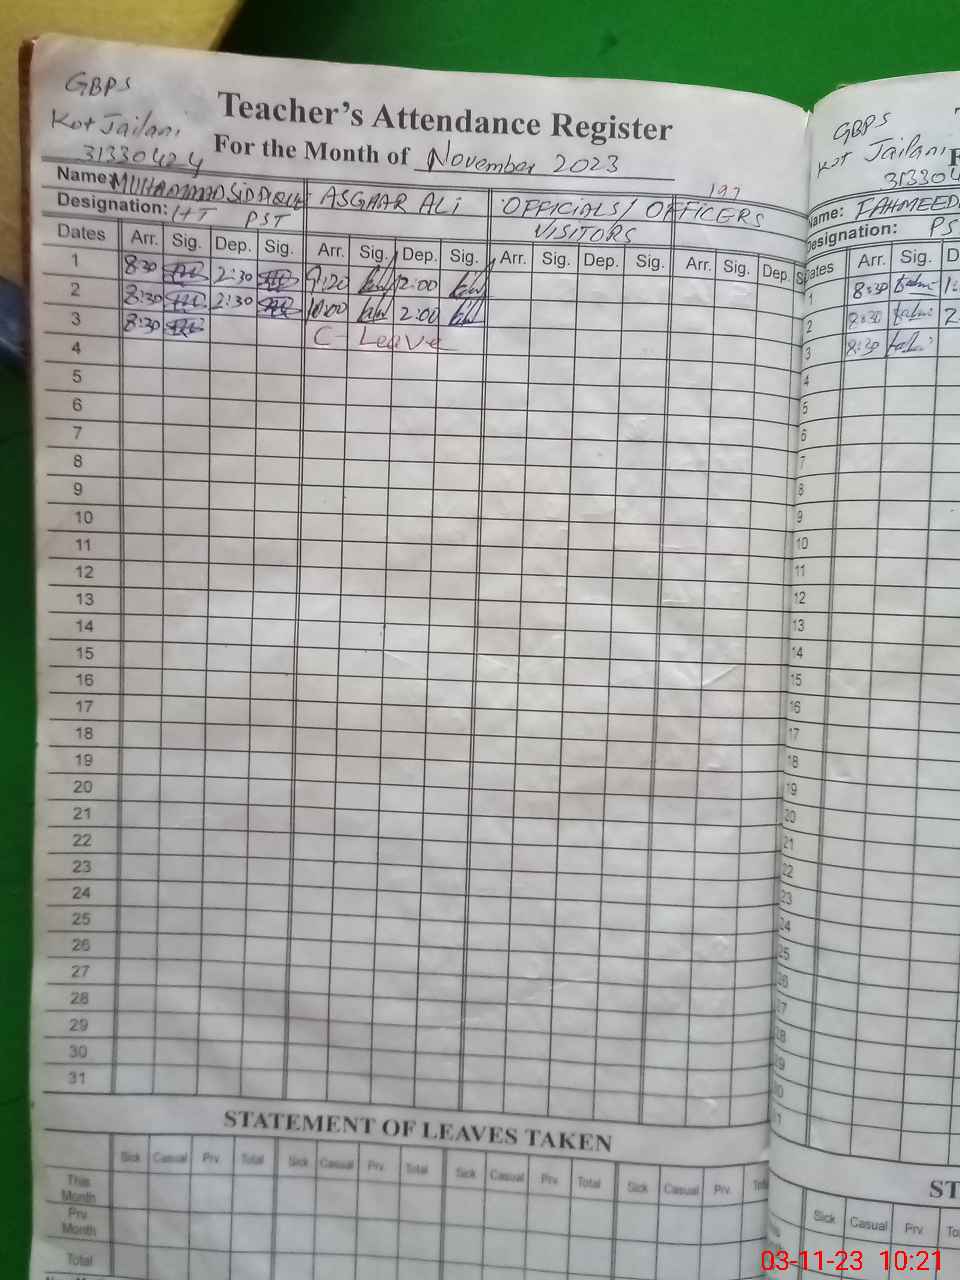 GBPS
Kot Jailani
31330424
Teacher's Attendance Register
For the Month of November 2023
197
Name: MUHAMMAD SIDDIQUE ASGHAR ALI OFFICIALS/ OFFICERS
Designation: HT PST VISITORS
Dates Arr. Sig. Dep. Sig. Arr. Sig. Dep. Sig. Arr. Sig. Dep. Sig. Arr. Sig. Dep.
1 8:30 2:30 9:20 2:00
2 8:30 2:30 10:00 2:00
3 8:30 C - Leave
4
5
6
7
8
9
10
11
12
13
14
15
16
17
18
19
20
21
22
23
24
25
26
27
28
29
30
31
STATEMENT OF LEAVES TAKEN
Sick Casual Prv. Total Sick Casual Prv. Total Sick Casual Prv. Total Sick Casual Prv.
This Month
Prv. Month
Total
GBPS
Kot Jailani
Name: FAHMEED
Designation: PS
Dates Arr. Sig. D
1 8:30
2 8:30 2
3 8:30
4
5
6
7
8
9
10
11
12
13
14
15
16
17
18
19
20
21
22
23
24
25
ST
Sick Casual Prv.
03-11-23 10:21